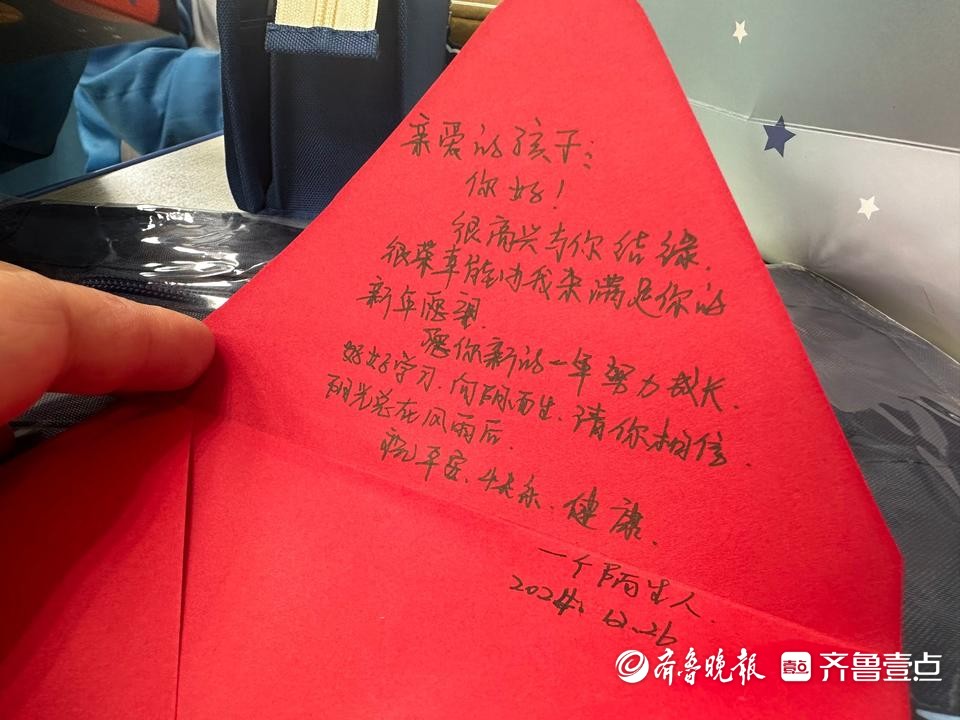 亲爱的孩子:
你好!
很高兴与你结缘.
很荣幸能由我来满足你的
新年愿望.
愿你新的一年努力成长.
好好学习.向阳而生.请你相信.
阳光总在风雨后.
祝平安.快乐.健康.
一个陌生人.
2024.12.26
齐鲁晚报 壹点 齐鲁壹点